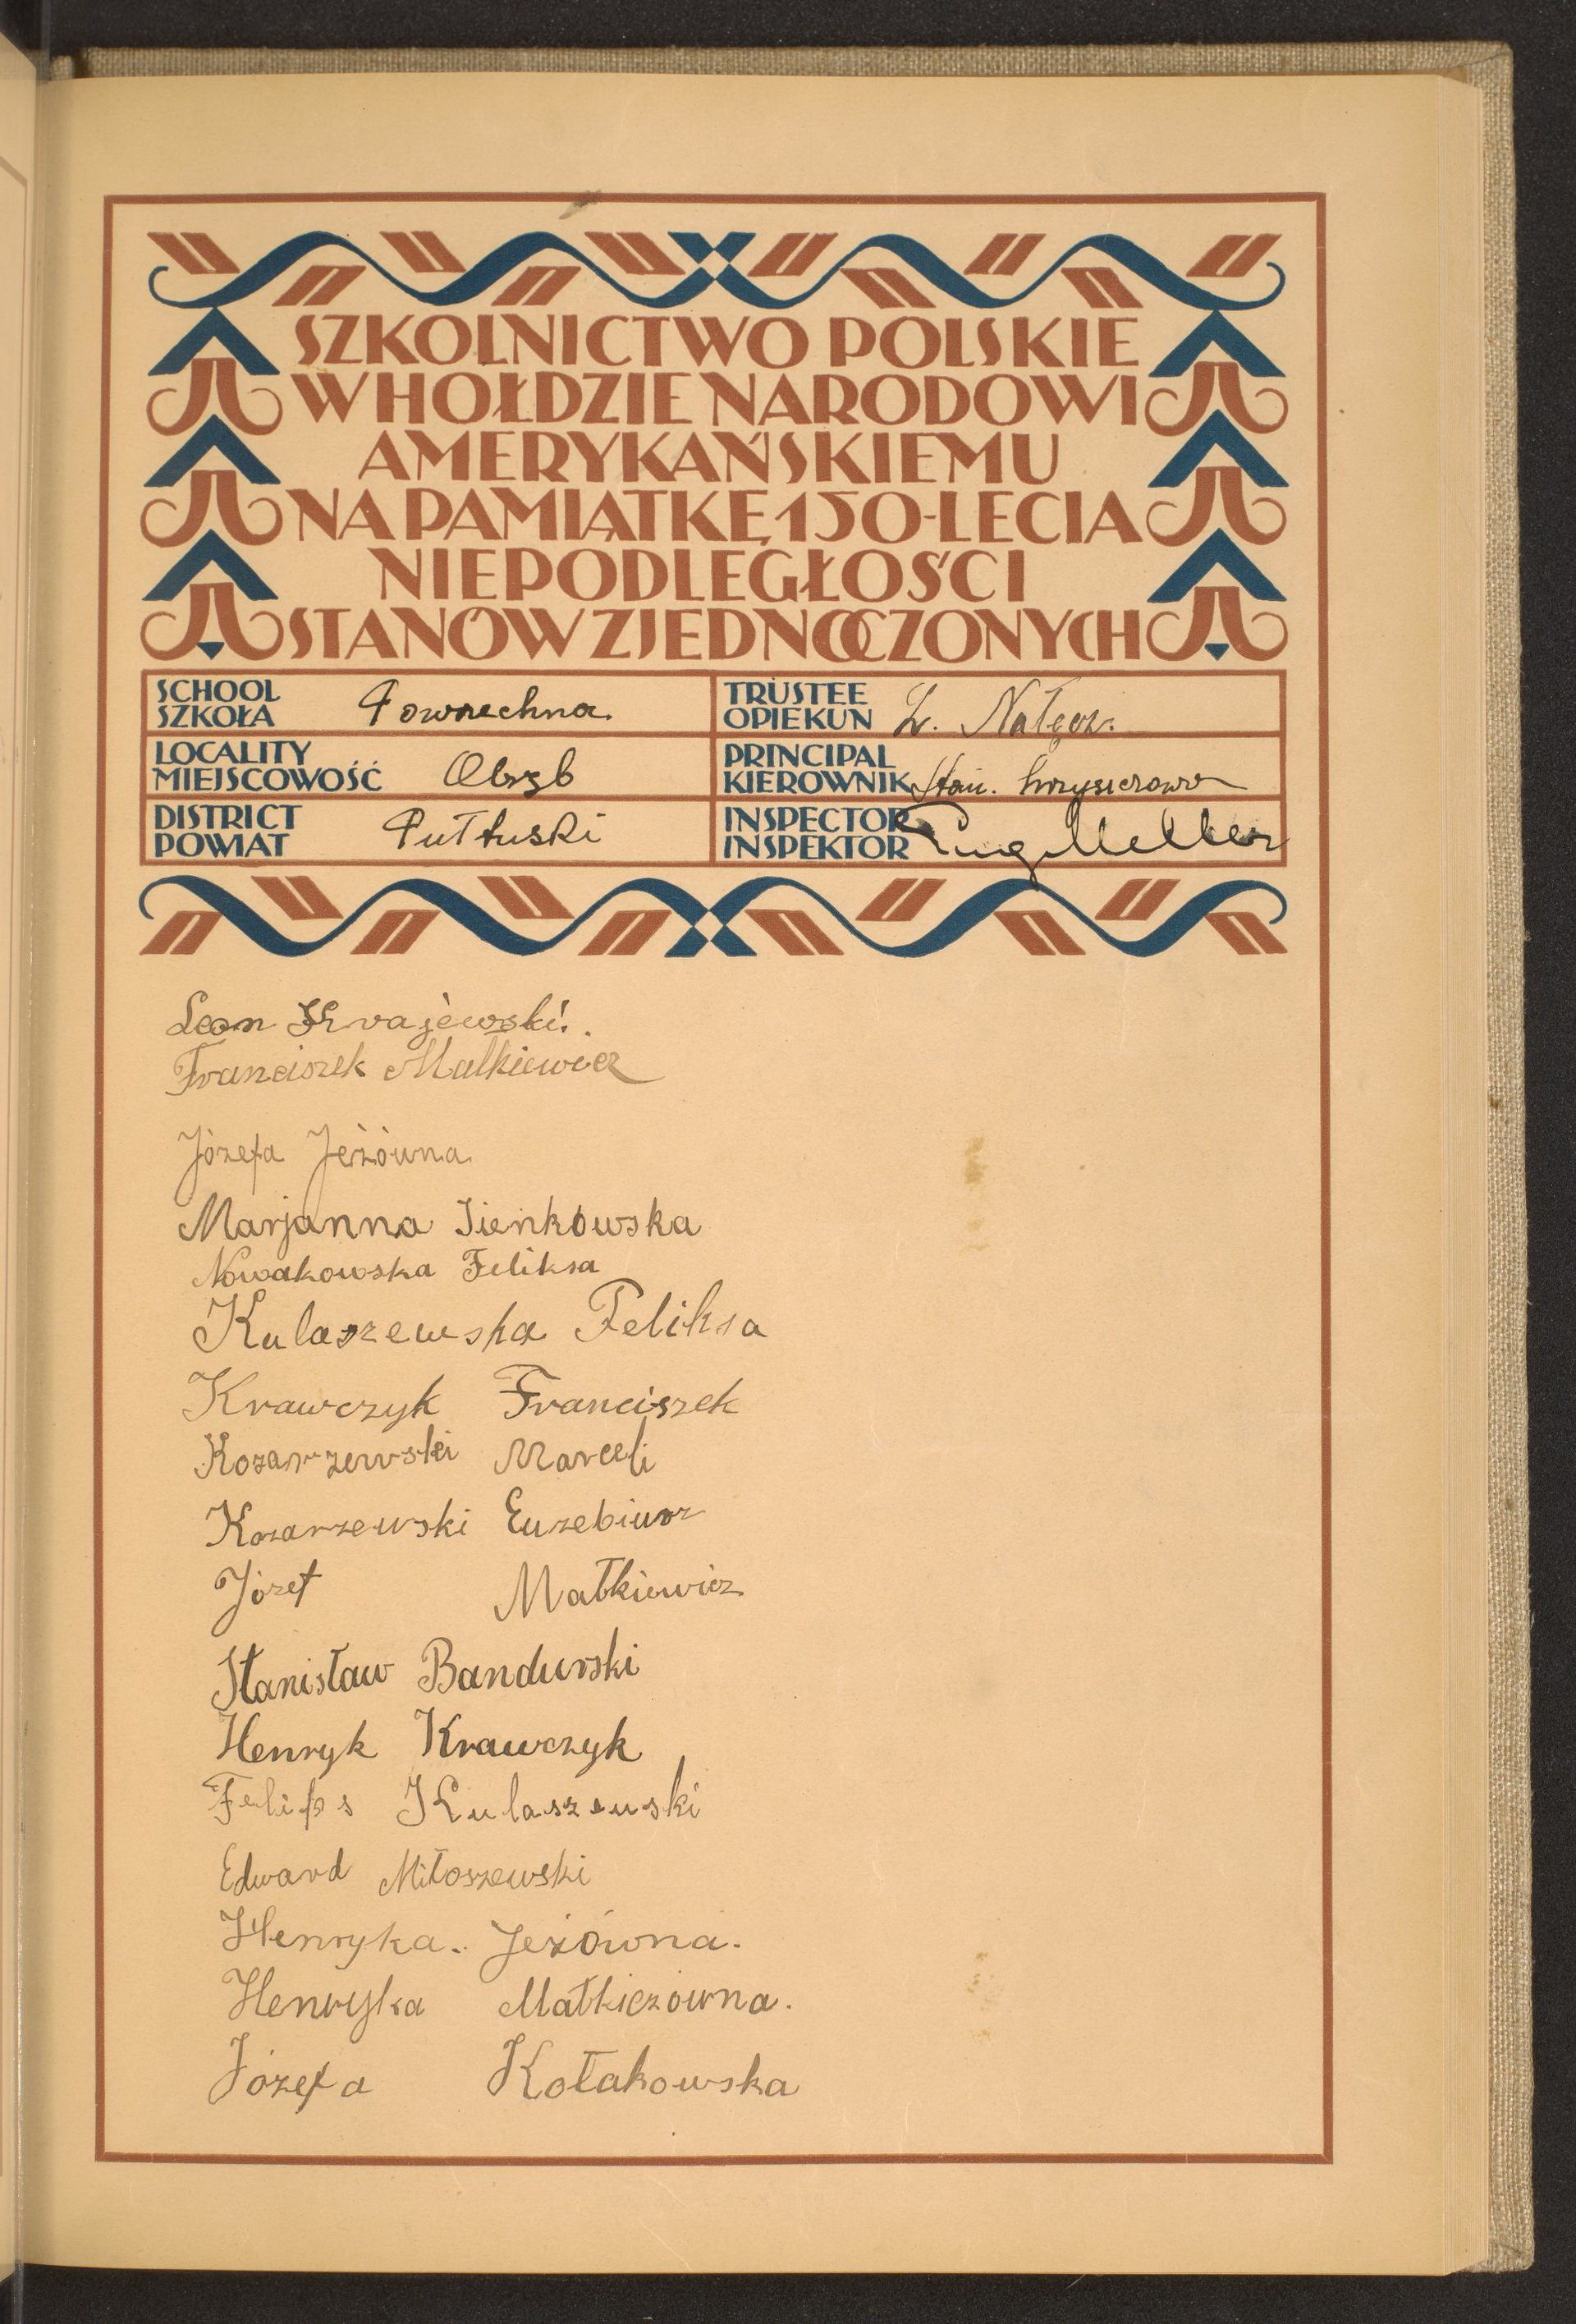 SZKOLNICTWO POLSKIE
W HOŁDZIE NARODOWI
AMERYKAŃSKIEMU
NA PAMIĄTKĘ 150-LECIA
NIEPODLEGŁOŚCI
STANÓW ZJEDNOCZONYCH
SCHOOL
SZKOŁA Powszechna
TRUSTEE
OPIEKUN L. Nałęcz.
LOCALITY
MIEJSCOWOŚĆ Obrąb
PRINCIPAL
KIEROWNIK Stan.
DISTRICT
POWIAT Pułtuski
INSPECTOR
INSPEKTOR
Leon Krajewski.
Franciszek Malkiewicz
Józefa Jeżówna
Marjanna Sienkowska
Nowakowska Feliksa
Kulaszewska Feliksa
Krawczyk Franciszek
Kozarzewski Marceli
Kozarzewski Euzebiusz
Józef Małkiewicz
Stanisław Bandurski
Henryk Krawczyk
Feliks Kulaszewski
Edward Miłoszewski
Henryka. Jeżówna.
Henryka Małkiczówna.
Józefa Kołakowska